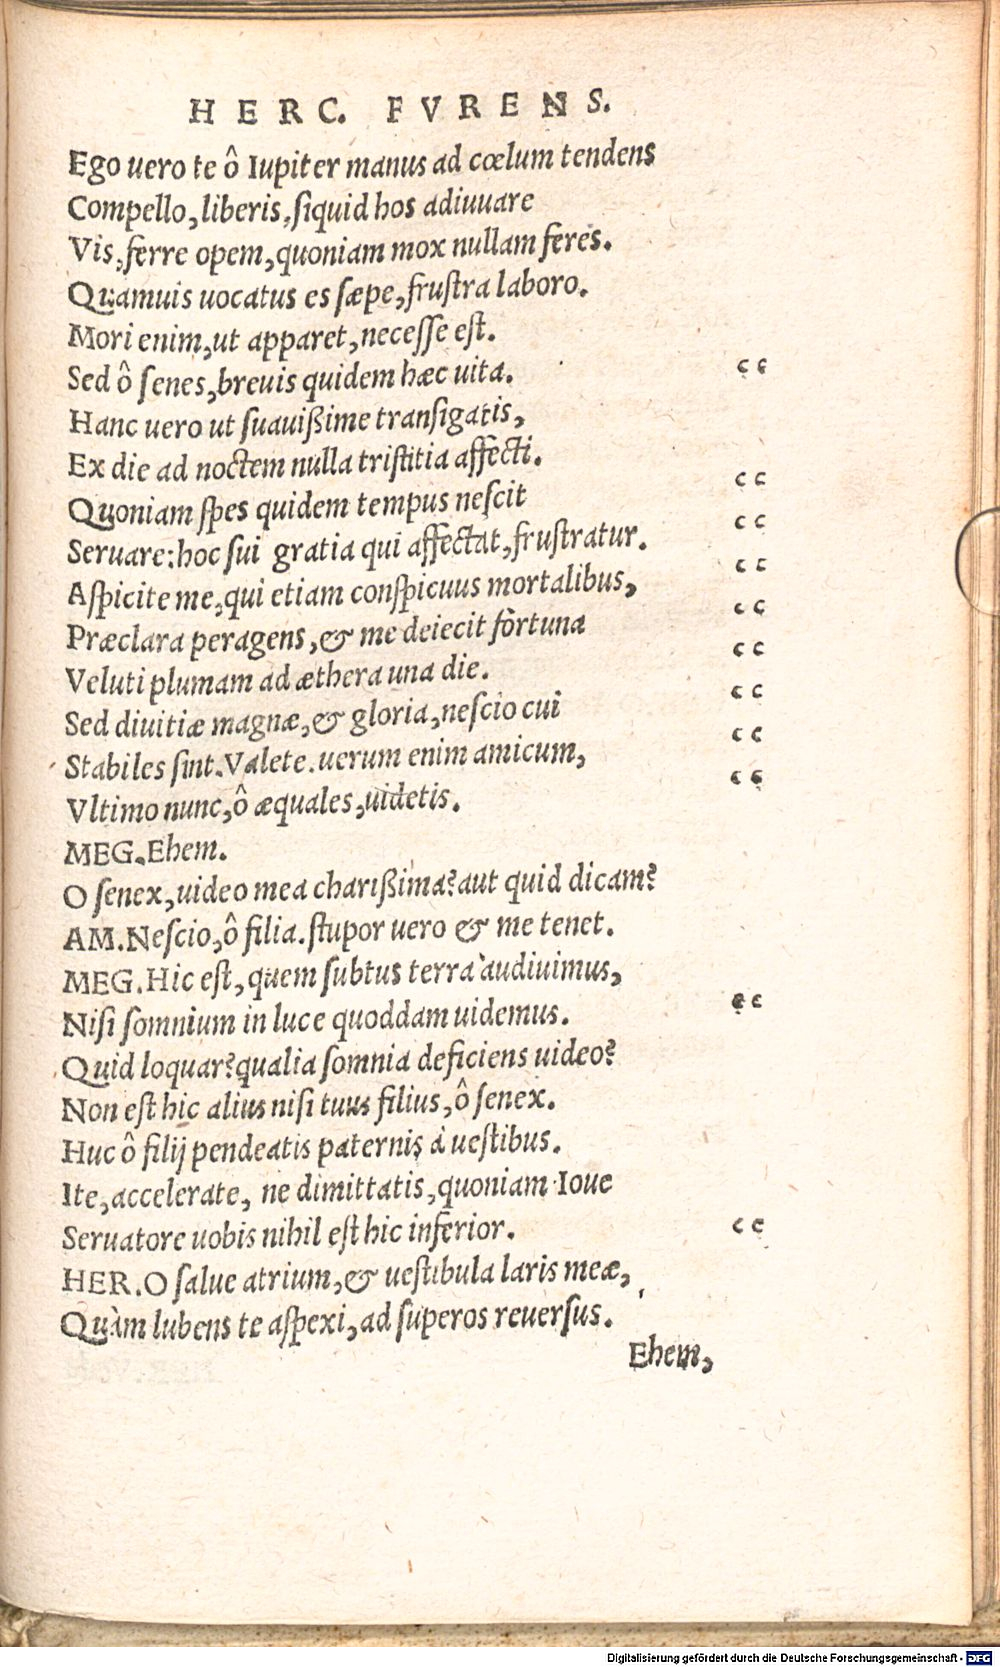 HERC. FVRENS.
Ego uero te ô Iupiter manus ad cœlum tendens
Compello, liberis, siquid hos adiuuare
Vis, ferre opem, quoniam mox nullam feres.
Quamuis uocatus es sæpe, frustra laboro.
Mori enim, ut apparet, necesse est.
Sed ô senes, breuis quidem hæc uita. “
Hanc uero ut suauißime transigatis,
Ex die ad noctem nulla tristitia affecti.
Quoniam spes quidem tempus nescit “
Seruare: hoc sui gratia qui affectat, frustratur. “
Aspicite me, qui etiam conspicuus mortalibus, “
Præclara peragens, & me deiecit fortuna “
Veluti plumam ad æthera una die. “
Sed diuitiæ magnæ, & gloria, nescio cui “
Stabiles sint. Valete. uerum enim amicum, “
Vltimo nunc, ô æquales, uidetis. “
MEG. Ehem.
O senex, uideo mea charißima? aut quid dicam?
AM. Nescio, ô filia. stupor uero & me tenet.
MEG. Hic est, quem subtus terra audiuimus,
Nisi somnium in luce quoddam uidemus. “
Quid loquar? qualia somnia deficiens uideo?
Non est hic alius nisi tuus filius, ô senex.
Huc ô filij pendeatis paternis à uestibus.
Ite, accelerate, ne dimittatis, quoniam Ioue
Seruatore uobis nihil est hic inferior. “
HER. O salue atrium, & uestibula laris meæ,
Quàm lubens te aspexi, ad superos reuersus.
Ehem,
Digitalisierung gefördert durch die Deutsche Forschungsgemeinschaft - DFG